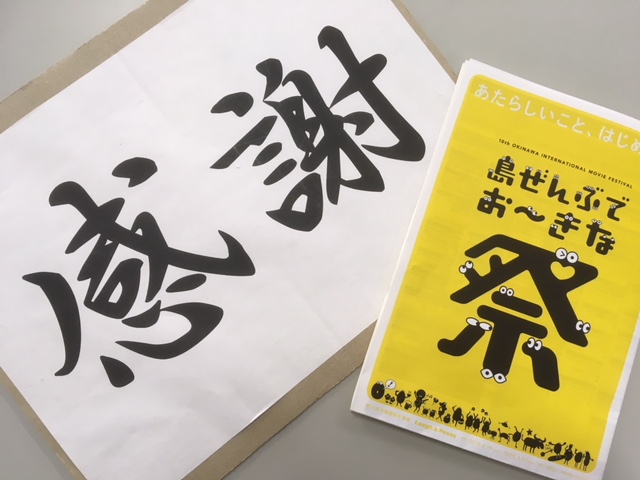 感謝
あたらしいこと、はじめ
10th OKINAWA INTERNATIONAL MOVIE FESTIVAL
島ぜんぶで
お〜きな
祭
Laugh & Peace